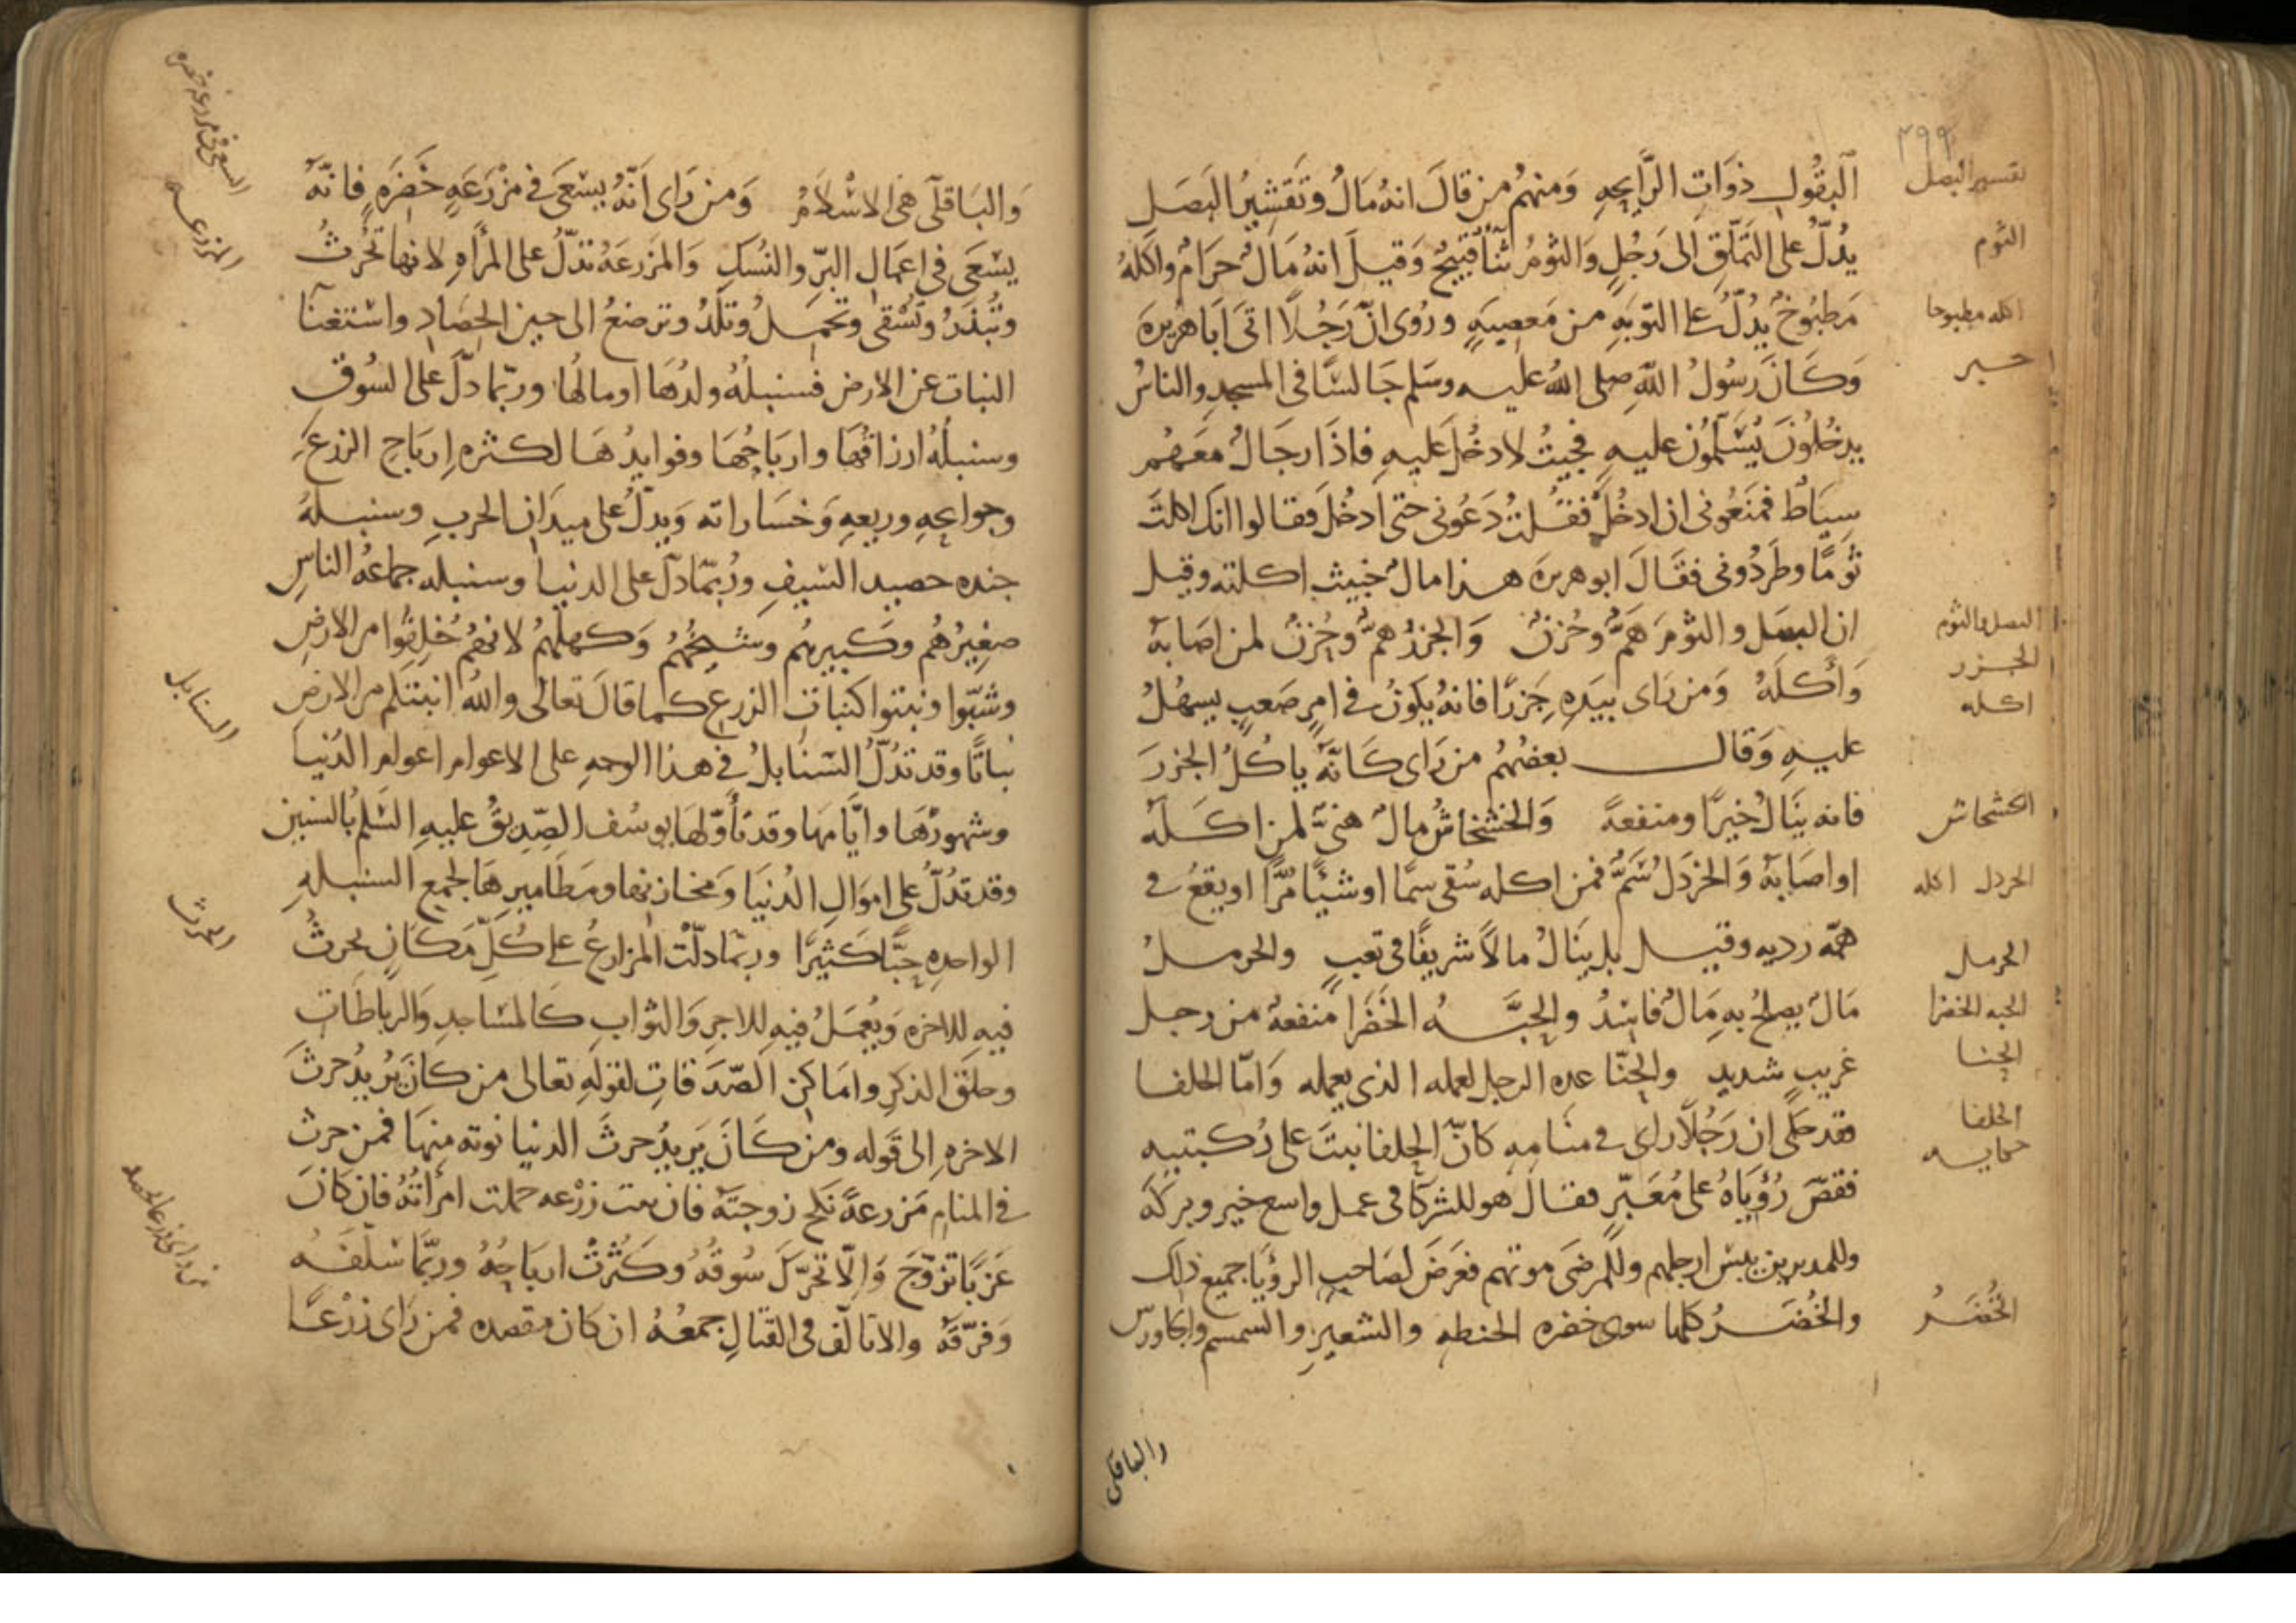 ٢٩٩
البقول ذوات الرَّايحه وَمنهُم من قالَ انهُ مَالٌ وتَقشِيرُ البَصَل
تقسير البصل
يدُلّ على التَمَلّقِ الى رَجُلٍ وَالثومُ ثَنَاً قَبيحٌ وَقيلَ انهُ مَالٌ حرَامٌ واكلهُ
الثوم
مَطبُوخٌ يدُلّ على التوبَهِ من مَعصِيَهٍ ورُوى انّ رَجُلًا اتَى ابَا هُريره
اكله مطبوخا
وَكَانَ رسُولُ اللهِ صلى اللهُ عليه وسَلم جَالسًا فى المسجدِ والناسُ
يدخُلونَ يُسَلّمُون عليهِ فجيتُ لادخُلَ عليهِ فاذَا رجَالٌ معَهُم
سِيَاطٌ فمَنَعُونى ان ادخُلَ فقُلتُ دَعُونى حتى ادخُلَ فقالوا انك اكلتَ
ثومًا وطَردُونى فقَالَ ابو هريرة هذا مالٌ خبيث اكلته وقيل
ان البصَل والثومَ هَمٌّ وحُزنٌ وَالجزرُ همٌّ وحُزنٌ لمن اصَابهُ
البصل والثوم
الجزر
وَأَكَلَهُ وَمن رَاى بيَدِه جَزرًا فانهُ يكونُ فى امرٍ صَعبٍ يسهُلُ
اكله
عليهِ وَقال بعضُهُم من رَاى كَانّه ياكُلُ الجزرَ
فانه يَنَالُ خيرًا ومنفعهً وَالخشخاشُ مالٌ هَنىٌّ لمن اكَلَه
الخشخاش
او اصَابهُ وَالخردَل سُمٌّ فمن اكله سُقى سمًا او شيئًا مُرًّا او يقعُ فى
الخردل اكله
همّه رديه وقيل بل ينَالُ مالًا شريفًا فى تعبٍ والحرملُ
الحرمل
مَالٌ يصلحُ بهِ مَالٌ فاسدٌ والحبَّهُ الخَضرَا منفعهٌ من رجل
الحبه الخضرا
غريبٍ شديدٍ والحِنّا عده الرجل لعمله الذى يعمله وَامّا الحلفا
الحنا
فقد حكى ان رَجُلًا راى فى منَامِهِ كانّ الحلفا نبتَ على رُكبتيه
الحلفا
حكايه
فقصّ رُؤيَاهُ على مُعَبّرٍ فقال هو للشركآ فى عمل واسع خير وبركه
وللمدبرين يبس ارجلهم وللمرضَى موتهم فعَرَضَ لصَاحبِ الرؤيَا جميع ذلك
والخُضَرُ كلها سوى خضره الحنطه والشعيرِ والسمسم والجاورس
الخُضَر
والباقلى
وَالبَاقلّى هى الاسْلامُ وَمن رَاى اَنّهُ يسْعَى فى مزْرَعَهٍ خَضِرَهٍ فانّهُ
السعى فى مزرعه خضره
يسْعَى فى اعمَالِ البرّ والنُسكِ وَالمزرعَهُ تدلّ على المرأهِ لانها تحُرثُ
المزرعه
وتُبذَرُ وتُسْقى وتحمِلُ وتَلدُ وترضعُ الى حين الحصَادِ واستغنآ
النبات عن الارض فسنبلهُ ولدُهَا او مالُها وربّما دلّ على السُوق
وسنبلُهُ ارزاقُهَا وارباحُهَا وفوايدُهَا لكثرهِ ارباحِ الزرعِ
وجوايحِهِ وريعهِ وَخسَاراته وَيدلّ على ميدَان الحربِ وسنبلهُ
جنده حصيد السَيفِ ورُبّما دلّ على الدنيا وسنبله جماعهُ الناسِ
صغِيرُهُم وكَبيرهُم وشيخُهُم وَكهلهُم لانهُم خُلِقُوا من الارضِ
وشبّوا ونبتوا كنباتِ الزرعِ كما قالَ تعالى واللهُ انبتكم من الارضِ
السنابل
نباتًا وقد تدُلّ السَنَابلُ فى هذا الوجهِ على الاعوام اعوام الدُنيا
وشهورُهَا وايَّامهَا وقد تأوّلها يوسُف الصّديقُ عليهِ السَلم بالسنين
وقد تدُلّ على اموَالِ الدُنيَا وَمخازنها ومطَاميرهَا لجمع السنبلهِ
الواحدهِ حبًّا كَثيرًا وربّما دلّت المزارعُ على كُلّ مَكَانٍ يحرثُ
الحرث
فيهِ للاخره وَيُعمَلُ فيهِ للاجرِ وَالثوابِ كَالمسَاجدِ وَالرباطَاتِ
وحلَق الذكرِ وامَاكن الصّدَقاتِ لقولهِ تعالى من كانَ يُريدُ حرثَ
الاخرهِ الى قَوله ومن كَانَ يريدُ حرثَ الدنيا نوته منهَا فمن حرث
فى المنامِ مَزرعهً نكح زوجتَه فان نبت زرْعه حملت امرأتهُ فان كانَ
من راى زرعا يحصد
عَزبًا تزوّجَ وَالّا تحرّكَ سُوقُهُ وكَثُرتْ ارباحُهُ وربّمَا سَلّفَهُ
وَفرّقَهُ والا تالّف فى القتالِ جمعُهُ ان كان مقصده فمن رَاى زرْعًا